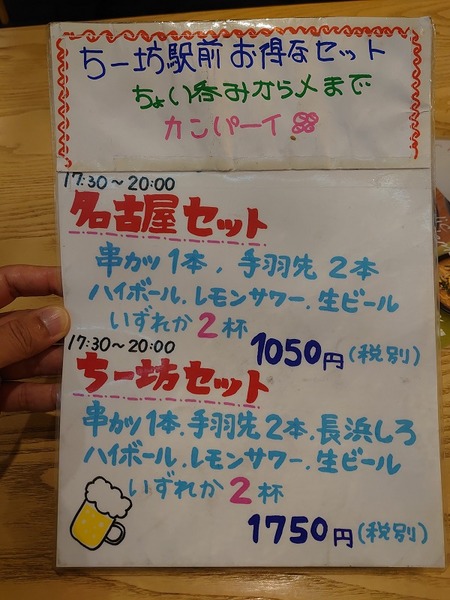 ちー坊駅前 お得なセット
ちょい呑みから〆まで
カンパーイ
17:30～20:00
名古屋セット
串カツ1本, 手羽先2本
ハイボール, レモンサワー, 生ビール
いずれか2杯
1050円(税別)
17:30～20:00
ちー坊セット
串カツ1本, 手羽先2本, 長浜しろ
ハイボール, レモンサワー, 生ビール
いずれか2杯
1750円(税別)